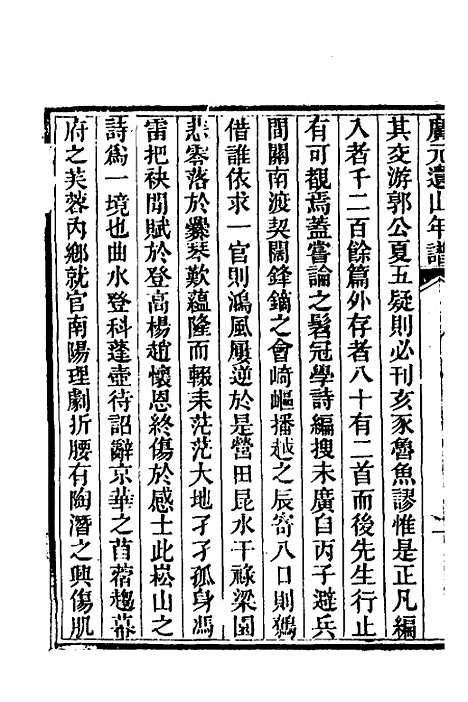 廣元遺山年譜
其交游郭公夏五疑則必刊亥豕魯魚謬惟是正凡編
入者千二百餘篇外存者八十有二首而後先生行止
有可覩焉蓋嘗論之髫冠學詩編搜未廣自丙子避兵
間關南渡契闊鋒鏑之會崎嶇播越之辰寄八口則鷦
借誰依求一官則鴻風屢逆於是營田昆水干祿梁園
悲零落於爨琴歎蘊隆而輟耒茫茫大地孑孑孤身馮
雷把袂閒賦於登高楊趙懷恩終傷於感士此崧山之
詩爲一境也曲水登科蓬壺待詔辭京華之苜蓿趨幕
府之芙蓉內鄉就官南陽理劇折腰有陶潛之興傷肌